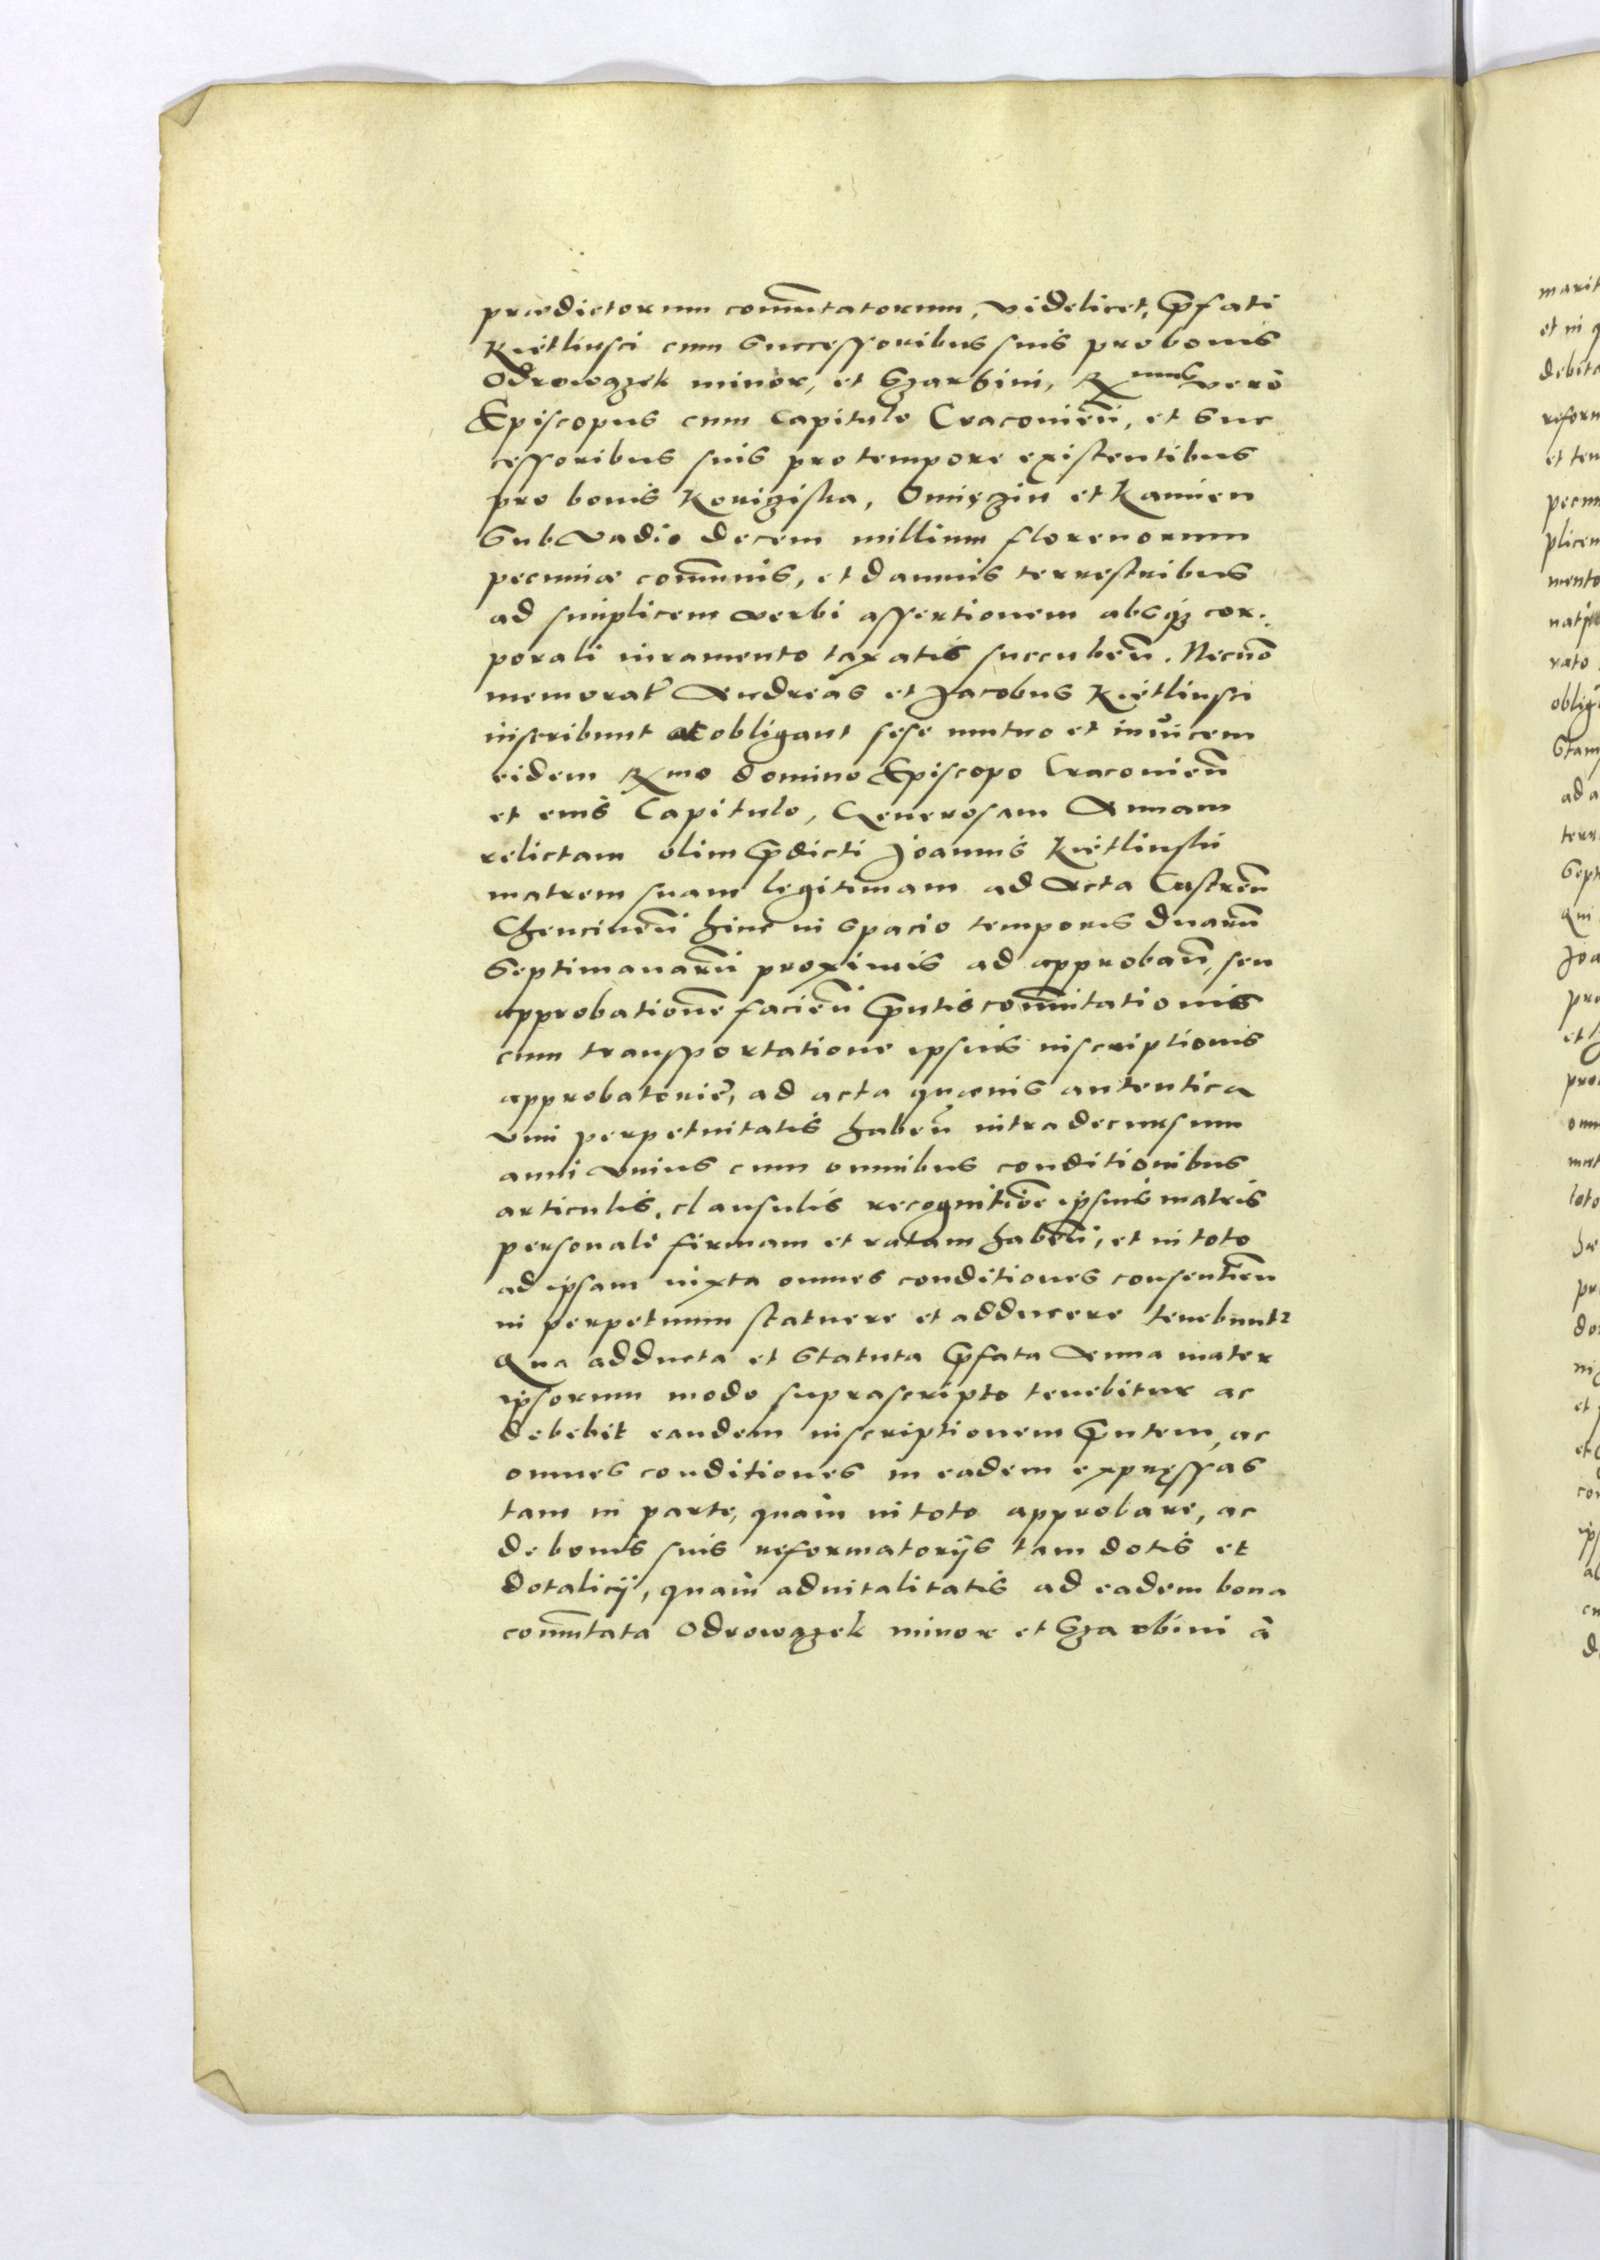 prædictorum com̄utatorum, videlicet, p̄fati
Kietlinsci cum Successoribus suis pro bonis
Odrowązek minor, et Szarbini, Rmus verò
Episcopus cum Capitulo Cracovien̄, et Suc
cessoribus suis pro tempore existentibus
pro bonis Koniziska, Smięzin et Kamien
Sub Vadio decem millium florenorum
pecuniæ com̄unis, et damnis terrestribus
ad simplicem verbi assertionem absq3 cor:
porali iuramento taxatis succuben̄. Necnō
memorat Andreas et Jacobus Kietlinsci
inscribunt ac obligant sese mutuo et inuicem
eidem Rmo domino Episcopo Cracovien̄
et eius Capitulo, Generosam Annam
relictam olim p̄dicti Joannis Kietlinskii
matrem suam legitimam ad Acta Castren̄
Chencinen̄ hinc in spacio temporis duarū
Septimanarū proximis ad approban̄, seu
approbationē facien̄ p̄ntis com̄utationis
cum transportatione ipsius inscriptionis
approbatoriē, ad acta quævis autentica
vim perpetuitatis haben̄ intra decursum
anni vnius cum omnibus conditionibus
articulis, clausulis recognitiōe ipsius matris
personali firmam et ratam haben̄, et in toto
ad ipsam iuxta omnes conditiones consentien̄
in perpetuum statuere et adducere tenebunt2
Qua adducta et Statuta p̄fata Anna mater
ipsorum modo suprascripto tenebitur ac
debebit eandem inscriptionem p̄ntem, ac
omnes conditiones in eadem expręssas
tam in parte, quàm in toto approbare, ac
de bonis suis reformatorijs tam dotis et
dotalicij, quàm aduitalitatis ad eadem bona
com̄utata Odrowązek minor et Szarbini à